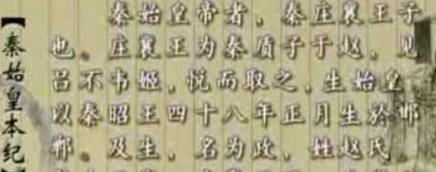 【秦始皇本纪
秦始皇帝者，秦庄襄王子
也。庄襄王为秦质子于赵，见
吕不韦姬，悦而取之，生始皇
以秦昭王四十八年正月生於邯
郸。及生，名为政，姓赵氏。